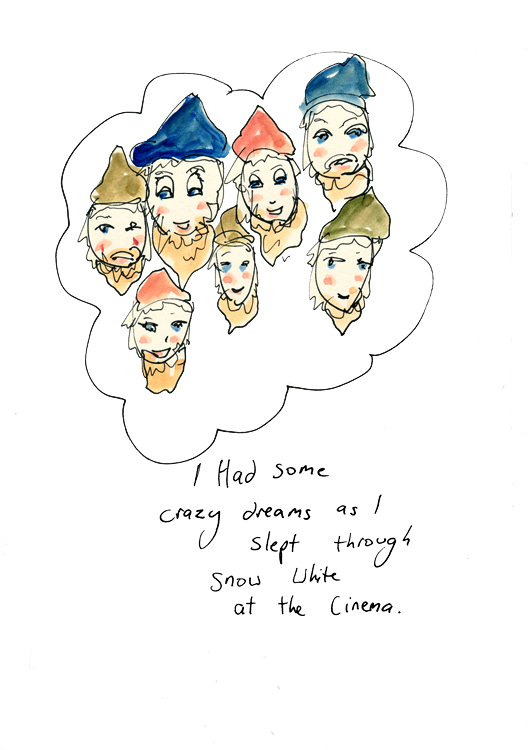 I Had some
crazy dreams as I
slept through
Snow White
at the Cinema.